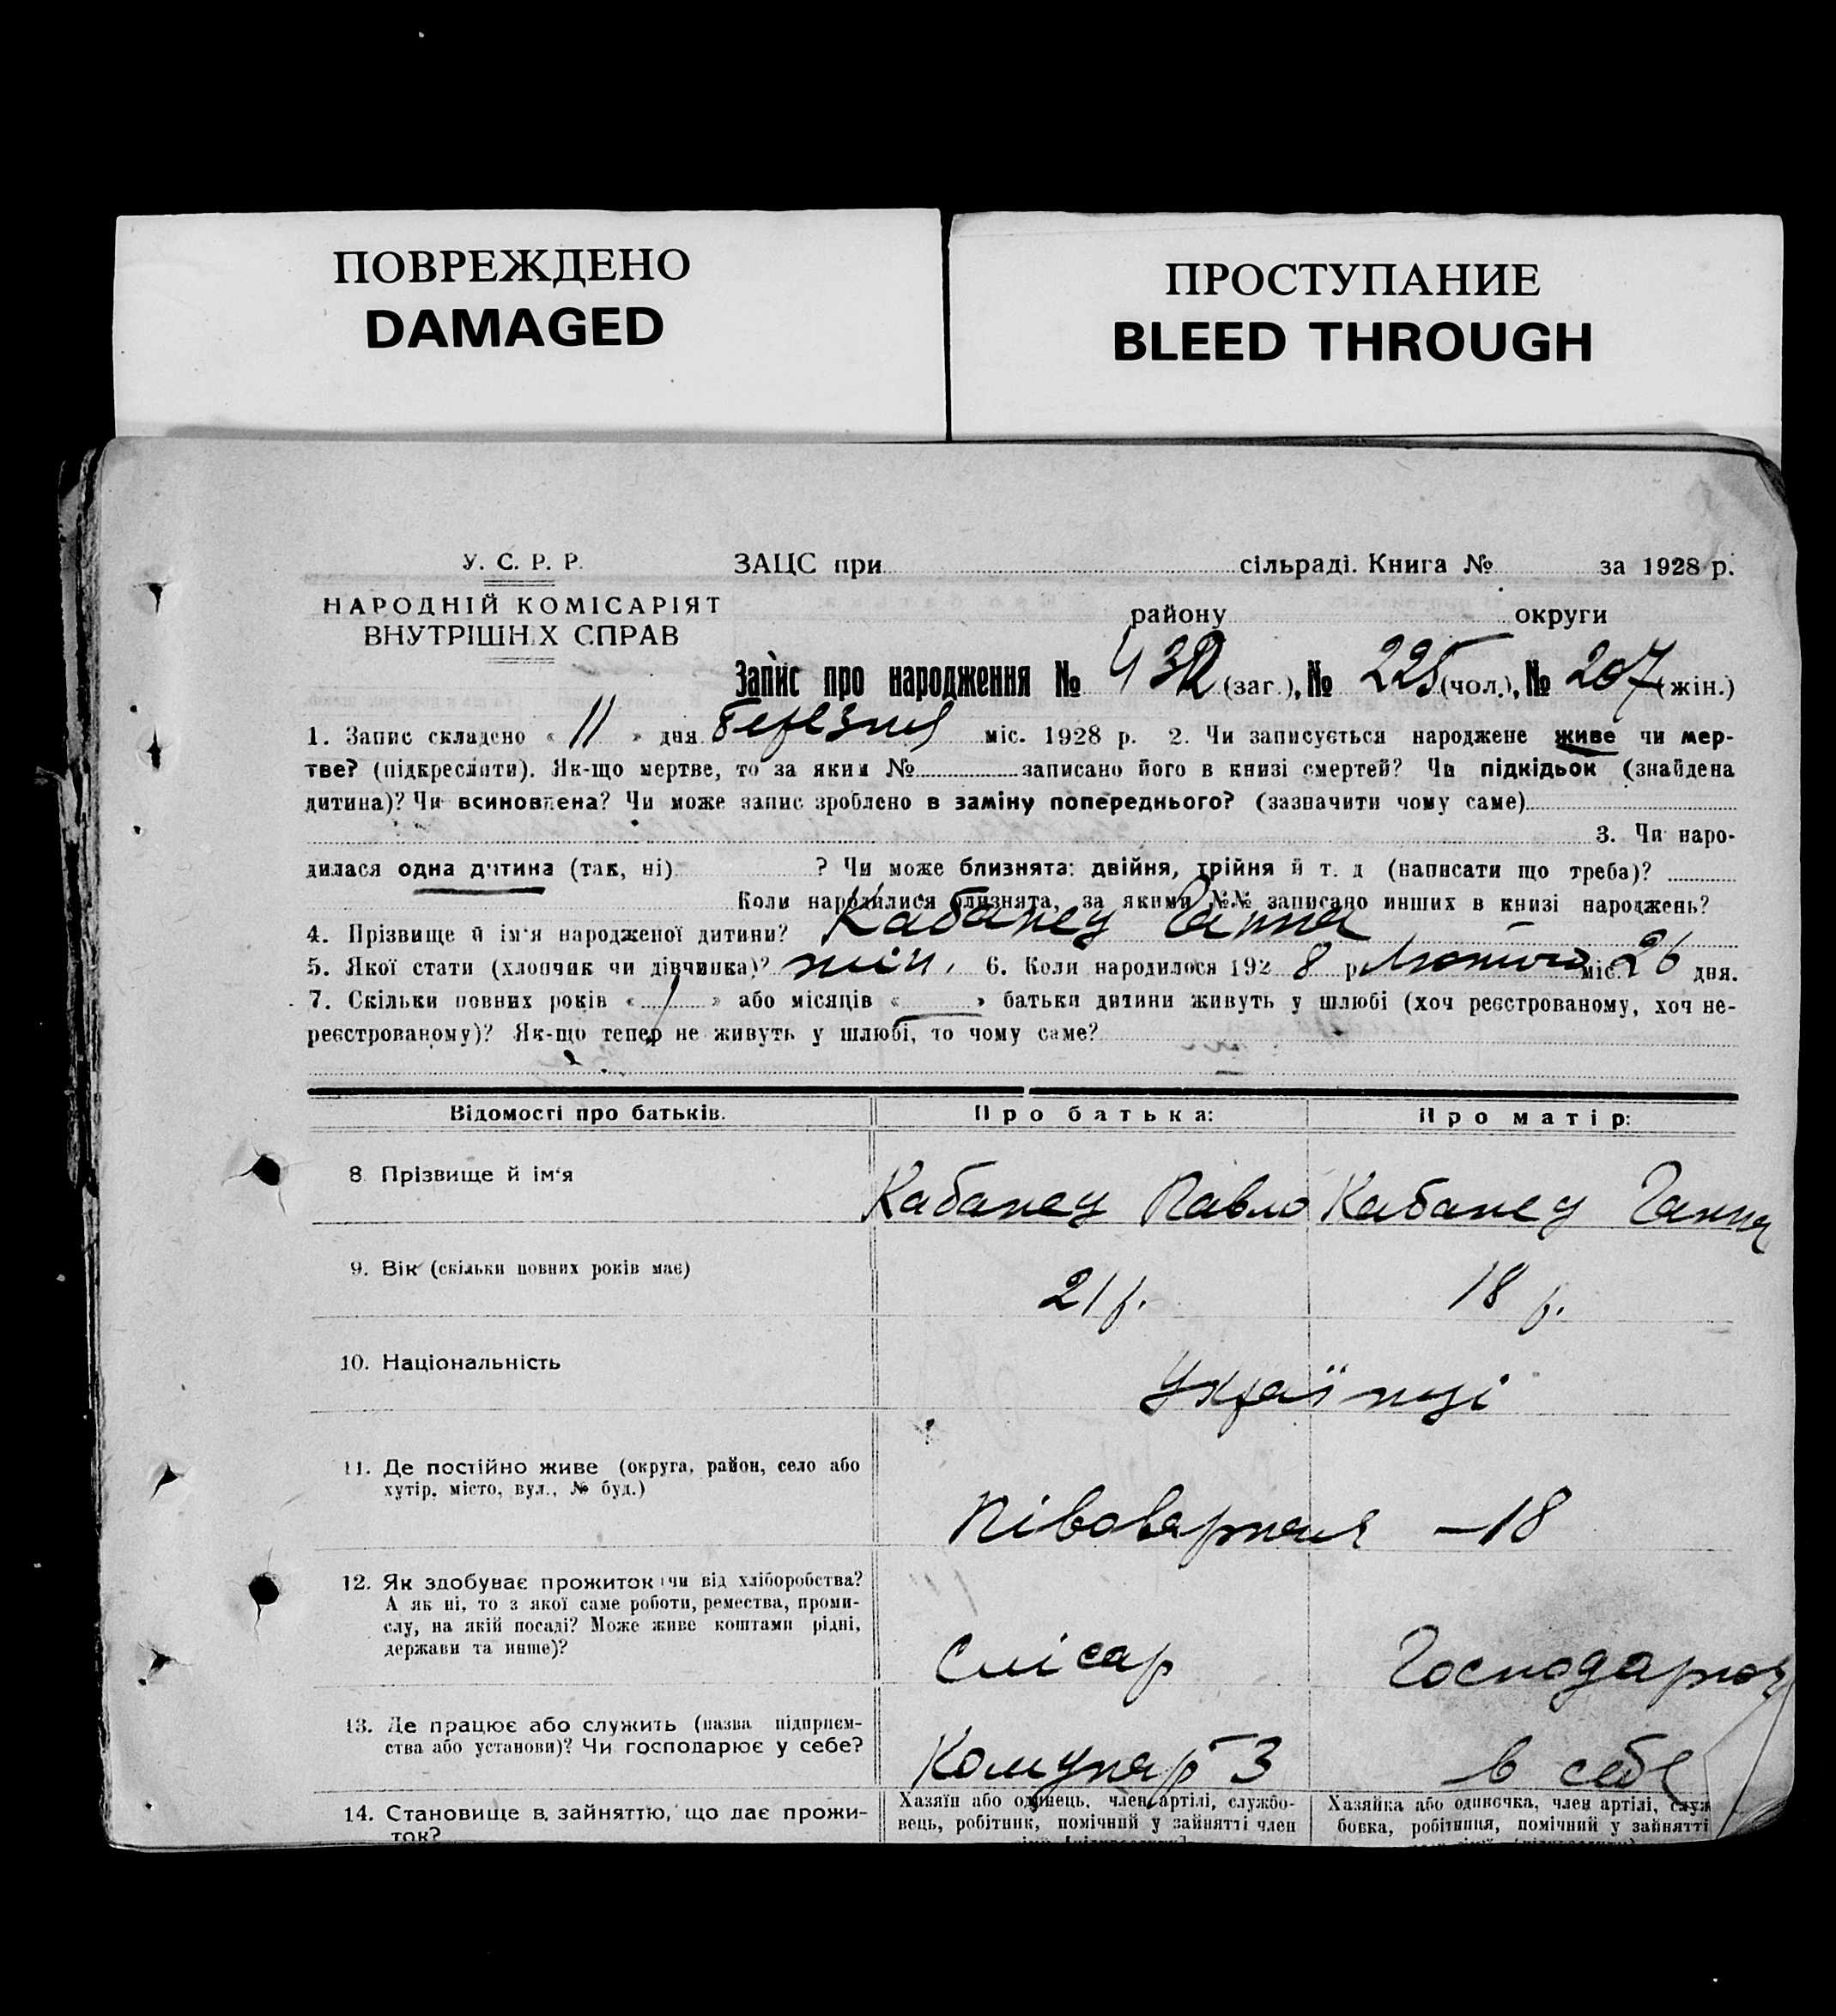 ПОВРЕЖДЕНО
DAMAGED
ПРОСТУПАНИЕ
BLEED THROUGH
У. С. Р. Р.
НАРОДНІЙ КОМІСАРІЯТ
ВНУТРІШНІХ СПРАВ
ЗАЦС при сільраді. Книга № за 1928 р.
району округи
Запис про народження № 432 (заг.), № 225 (чол.), № 207 (жін.)
1. Запис складено « 11 » дня березня міс. 1928 р. 2. Чи записується народжене живе чи мер-
тве? (підкреслити). Як-що мертве, то за яким № записано його в книзі смертей? Чи підкідьок (знайдена
дитина)? Чи всиновлена? Чи може запис зроблено в заміну попереднього? (зазначити чому саме)
3. Чи наро-
дилася одна дитина (так, ні) ? Чи може близнята: двійня, трійня й т. д (написати що треба)?
Коли народилися близнята, за якими №№ записано инших в книзі народжень?
4. Прізвище й ім'я народженої дитини? Кабанец Ганна
5. Якої стати (хлопчик чи дівчинка)? жін. 6. Коли народилося 192 8 р. Лютого міс. 26 дня.
7. Скільки повних років « 1 » або місяців « » батьки дитини живуть у шлюбі (хоч реєстрованому, хоч не-
реєстрованому)? Як-що тепер не живуть у шлюбі, то чому саме?
Відомості про батьків. Про батька: Про матір:
8. Прізвище й ім'я Кабанец Павло Кабанец Ганна
9. Вік (скільки повних років має) 21 р. 18 р.
10. Національність Українці
11. Де постійно живе (округа, район, село або
хутір, місто, вул., № буд.)
Півоварная – 18
12. Як здобуває прожиток (чи від хліборобства?
А як ні, то з якої саме роботи, ремества, проми-
слу, на якій посаді? Може живе коштами рідні,
держави та инше)?
Слісар Господарює
13. Де працює або служить (назва підприєм-
ства або установи)? Чи господарює у себе?
Комунар 3 в себе
14. Становище в зайняттю, що дає прожи-
ток?
Хазяїн або одинець, член артілі, службо-
вець, робітник, помічний у зайнятті член
Хазяйка або одиночка, член артілі, служ
бовка, робітниця, помічний у зайнятті